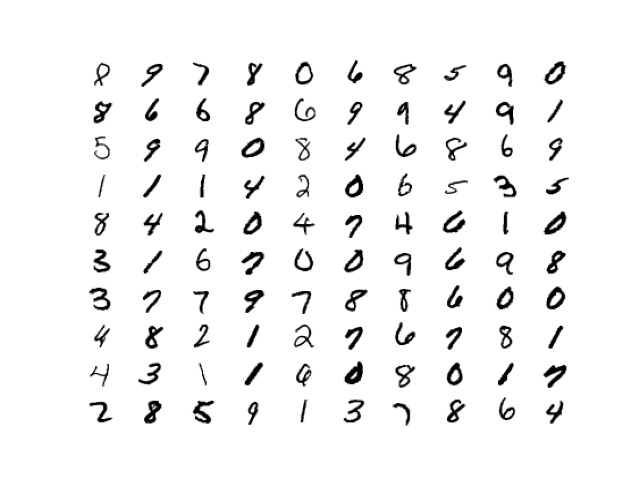 8 9 7 8 0 6 8 5 9 0
8 6 6 8 6 9 9 4 9 1
5 9 9 0 8 4 6 8 6 9
1 1 1 4 2 0 6 5 3 5
8 4 2 0 4 7 4 6 1 0
3 1 6 7 0 0 9 6 9 8
3 7 7 9 7 8 8 6 0 0
4 8 2 1 2 7 6 7 8 1
4 3 1 1 6 0 8 0 1 7
2 8 5 9 1 3 7 8 6 4